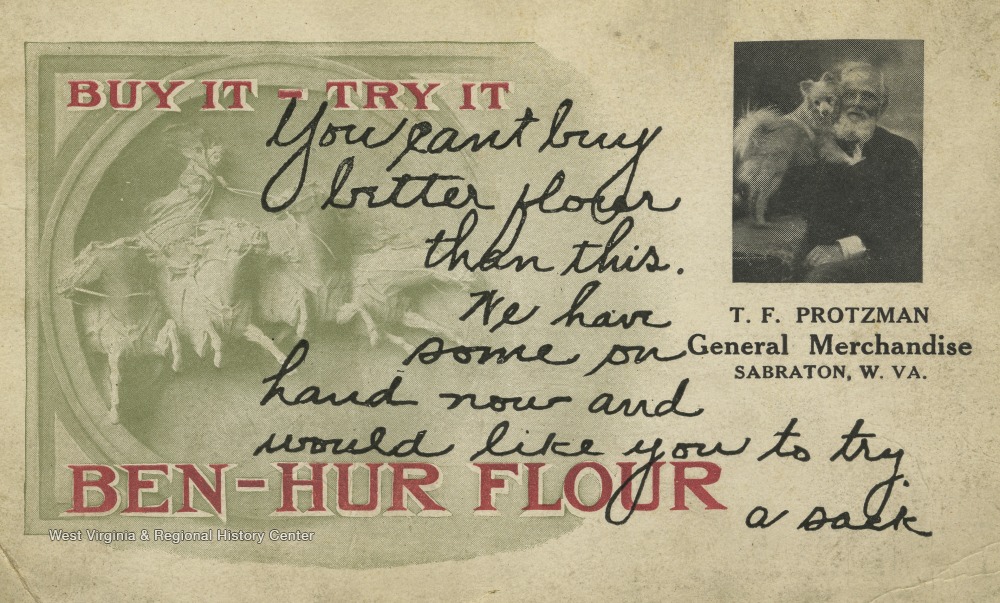 BUY IT - TRY IT
You cant buy
better flour
than this.
We have
some on
hand now and
would like you to try
a sack
BEN-HUR FLOUR
T. F. PROTZMAN
General Merchandise
SABRATON, W. VA.
West Virginia & Regional History Center